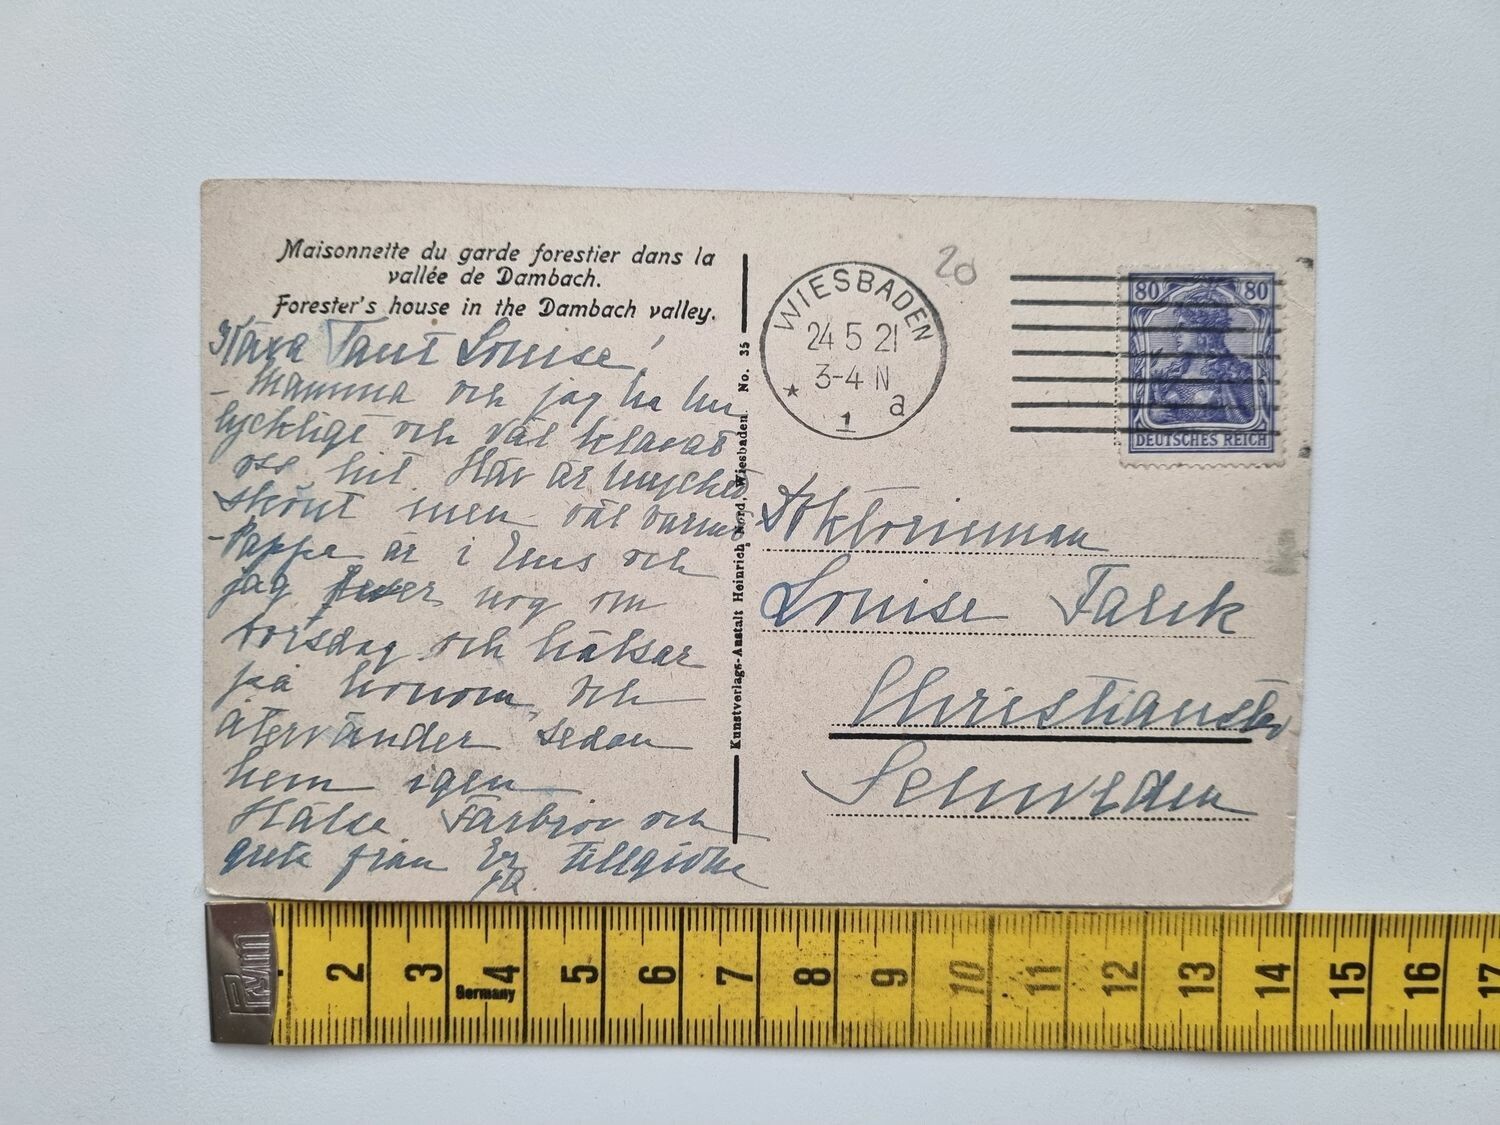 Maisonnette du garde forestier dans la
vallée de Dambach.
Forester's house in the Dambach valley.
Kära Tant Louise!
- Mamma och jag ha nu
lyckligt och väl klarat
oss hit. Här är mycket
skönt men väl varmt
- Pappa är i Ems och
jag reser nog om
torsdag och hälsar
på honom, och
återvänder sedan
hem igen
Hälsa Farbror och
Greta från Er tillgifne
Kunstverlags-Anstalt Heinrich Nord, Wiesbaden. No. 35
WIESBADEN
24 5 21
3-4 N
* 1 a
20
80 80
DEUTSCHES REICH
Doktorinnan
Louise Falck
Christianstad
Schweden
Prym
2 3 4 5 6 7 8 9 10 11 12 13 14 15 16 17
Germany